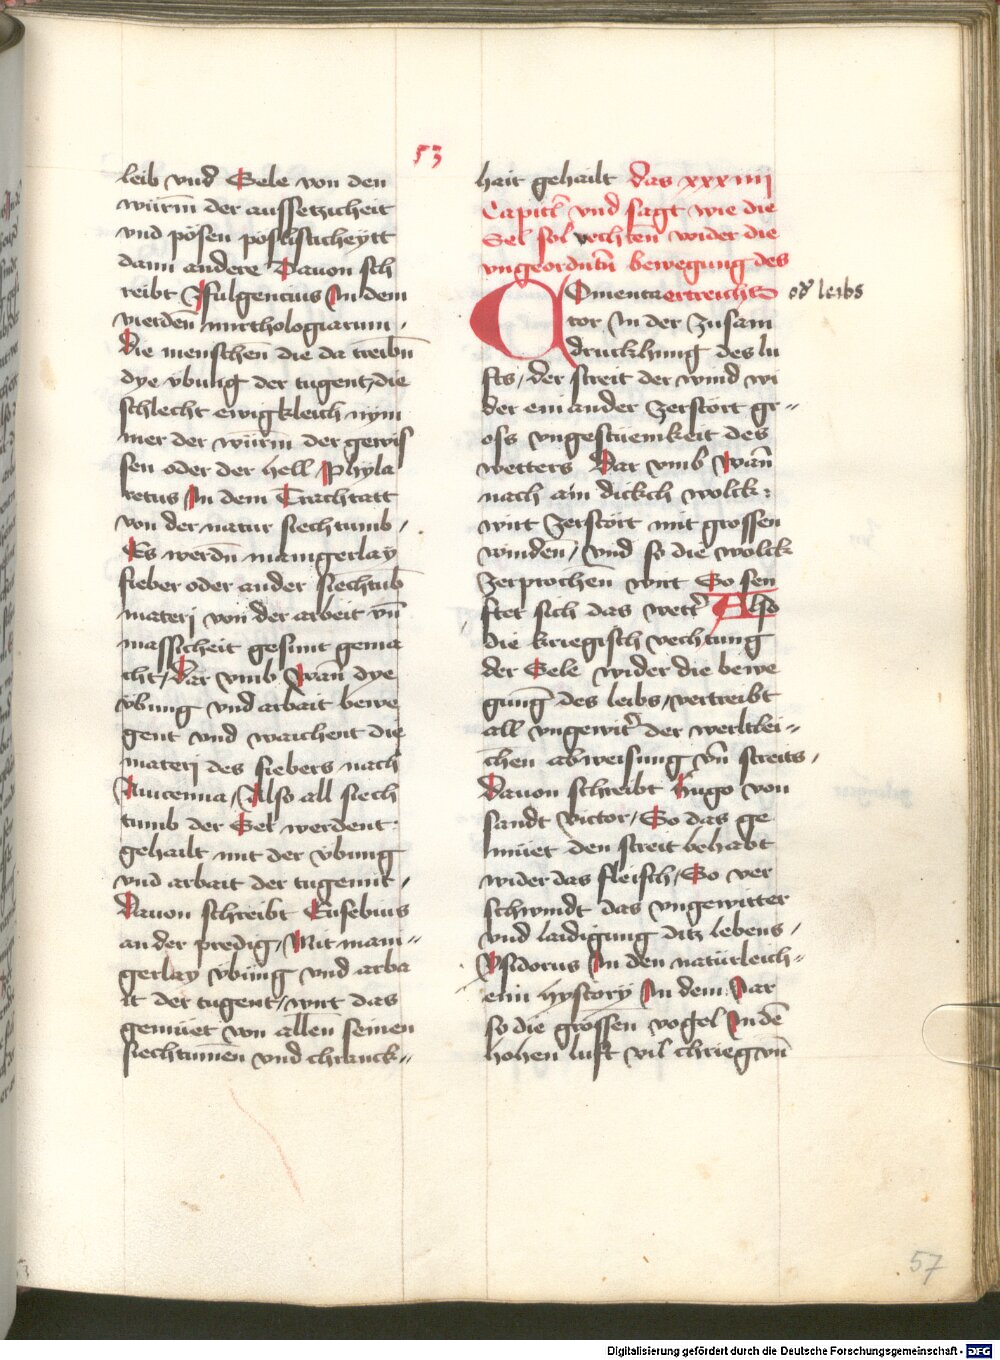 53
leib vnd Sele von den
würm der aussetzicheit
vnd pösen poslisticheytt
dann andere Dauon sch
reibt Ffulgencius In dem
vierden mirthologiarum .
Die menschen die da treibn̄
dye v̈bung der tugent, die
schlecht ewigkleich nym
mer der würm der gewis
sen oder der hell / Phyla
retus In dem Trachtatt
von der natur siechtumb .
Es werdn̄ manigerlay
fieber oder ander siechtūb
materj von der arbeit vn̄
massicheit gesunt gema
cht / Dar vmb Wan̄ dye
v̈bung vnd arbait bewe
gent vnd waichent die
materj des fiebers nach
Auicenna / Also all siech
tumb der Sel werdent
gehailt mit der v̈bung
vnd arbait der tugennt .
Dauon schreibt Eusebius
an der predig / Mit mani =
gerlay v̈bung vnd arba
it der tugent / wirt das
gemüet von allen seinen
siechtumen vnd chranck =
hait gehailt das xxxiiij
Capitl̄ vnd sagt wie die
Sel sol vechten wider die
vngeordntn̄ bewegung des
ertreichs od̄ leibs
Comenta
tor In der zusam
drucklhung des lu
fts / der streit der wind wi
der ein ander zerstört gr =
oss vngestüemkeit des
wetters Dar vmb Wan̄
nach ain dickch wolck :
wirt zerstört mit grossen
winden / Vnd so die wolck
zerprochen wirt So sen
ftet sich das wett̄ Also
die kriegisch vechtung
der Sele wider die bewe
gung des leibs / vertreibt
all vngewit̄ der werltlei =
chen abweisung vn̄ streits .
Dauon schreibt Hugo von
sandt victor / So das ge
müet den streit behabt
wider das fleisch / So ver
schwindt das vngewitter
vnd laidigung ditz lebens .
Ysidorus In den natürleich =
enn hystory In dem Iar
so die grossen vogel In dē
hohen luft vil chrieg vn̄
57
Digitalisierung gefördert durch die Deutsche Forschungsgemeinschaft - DFG